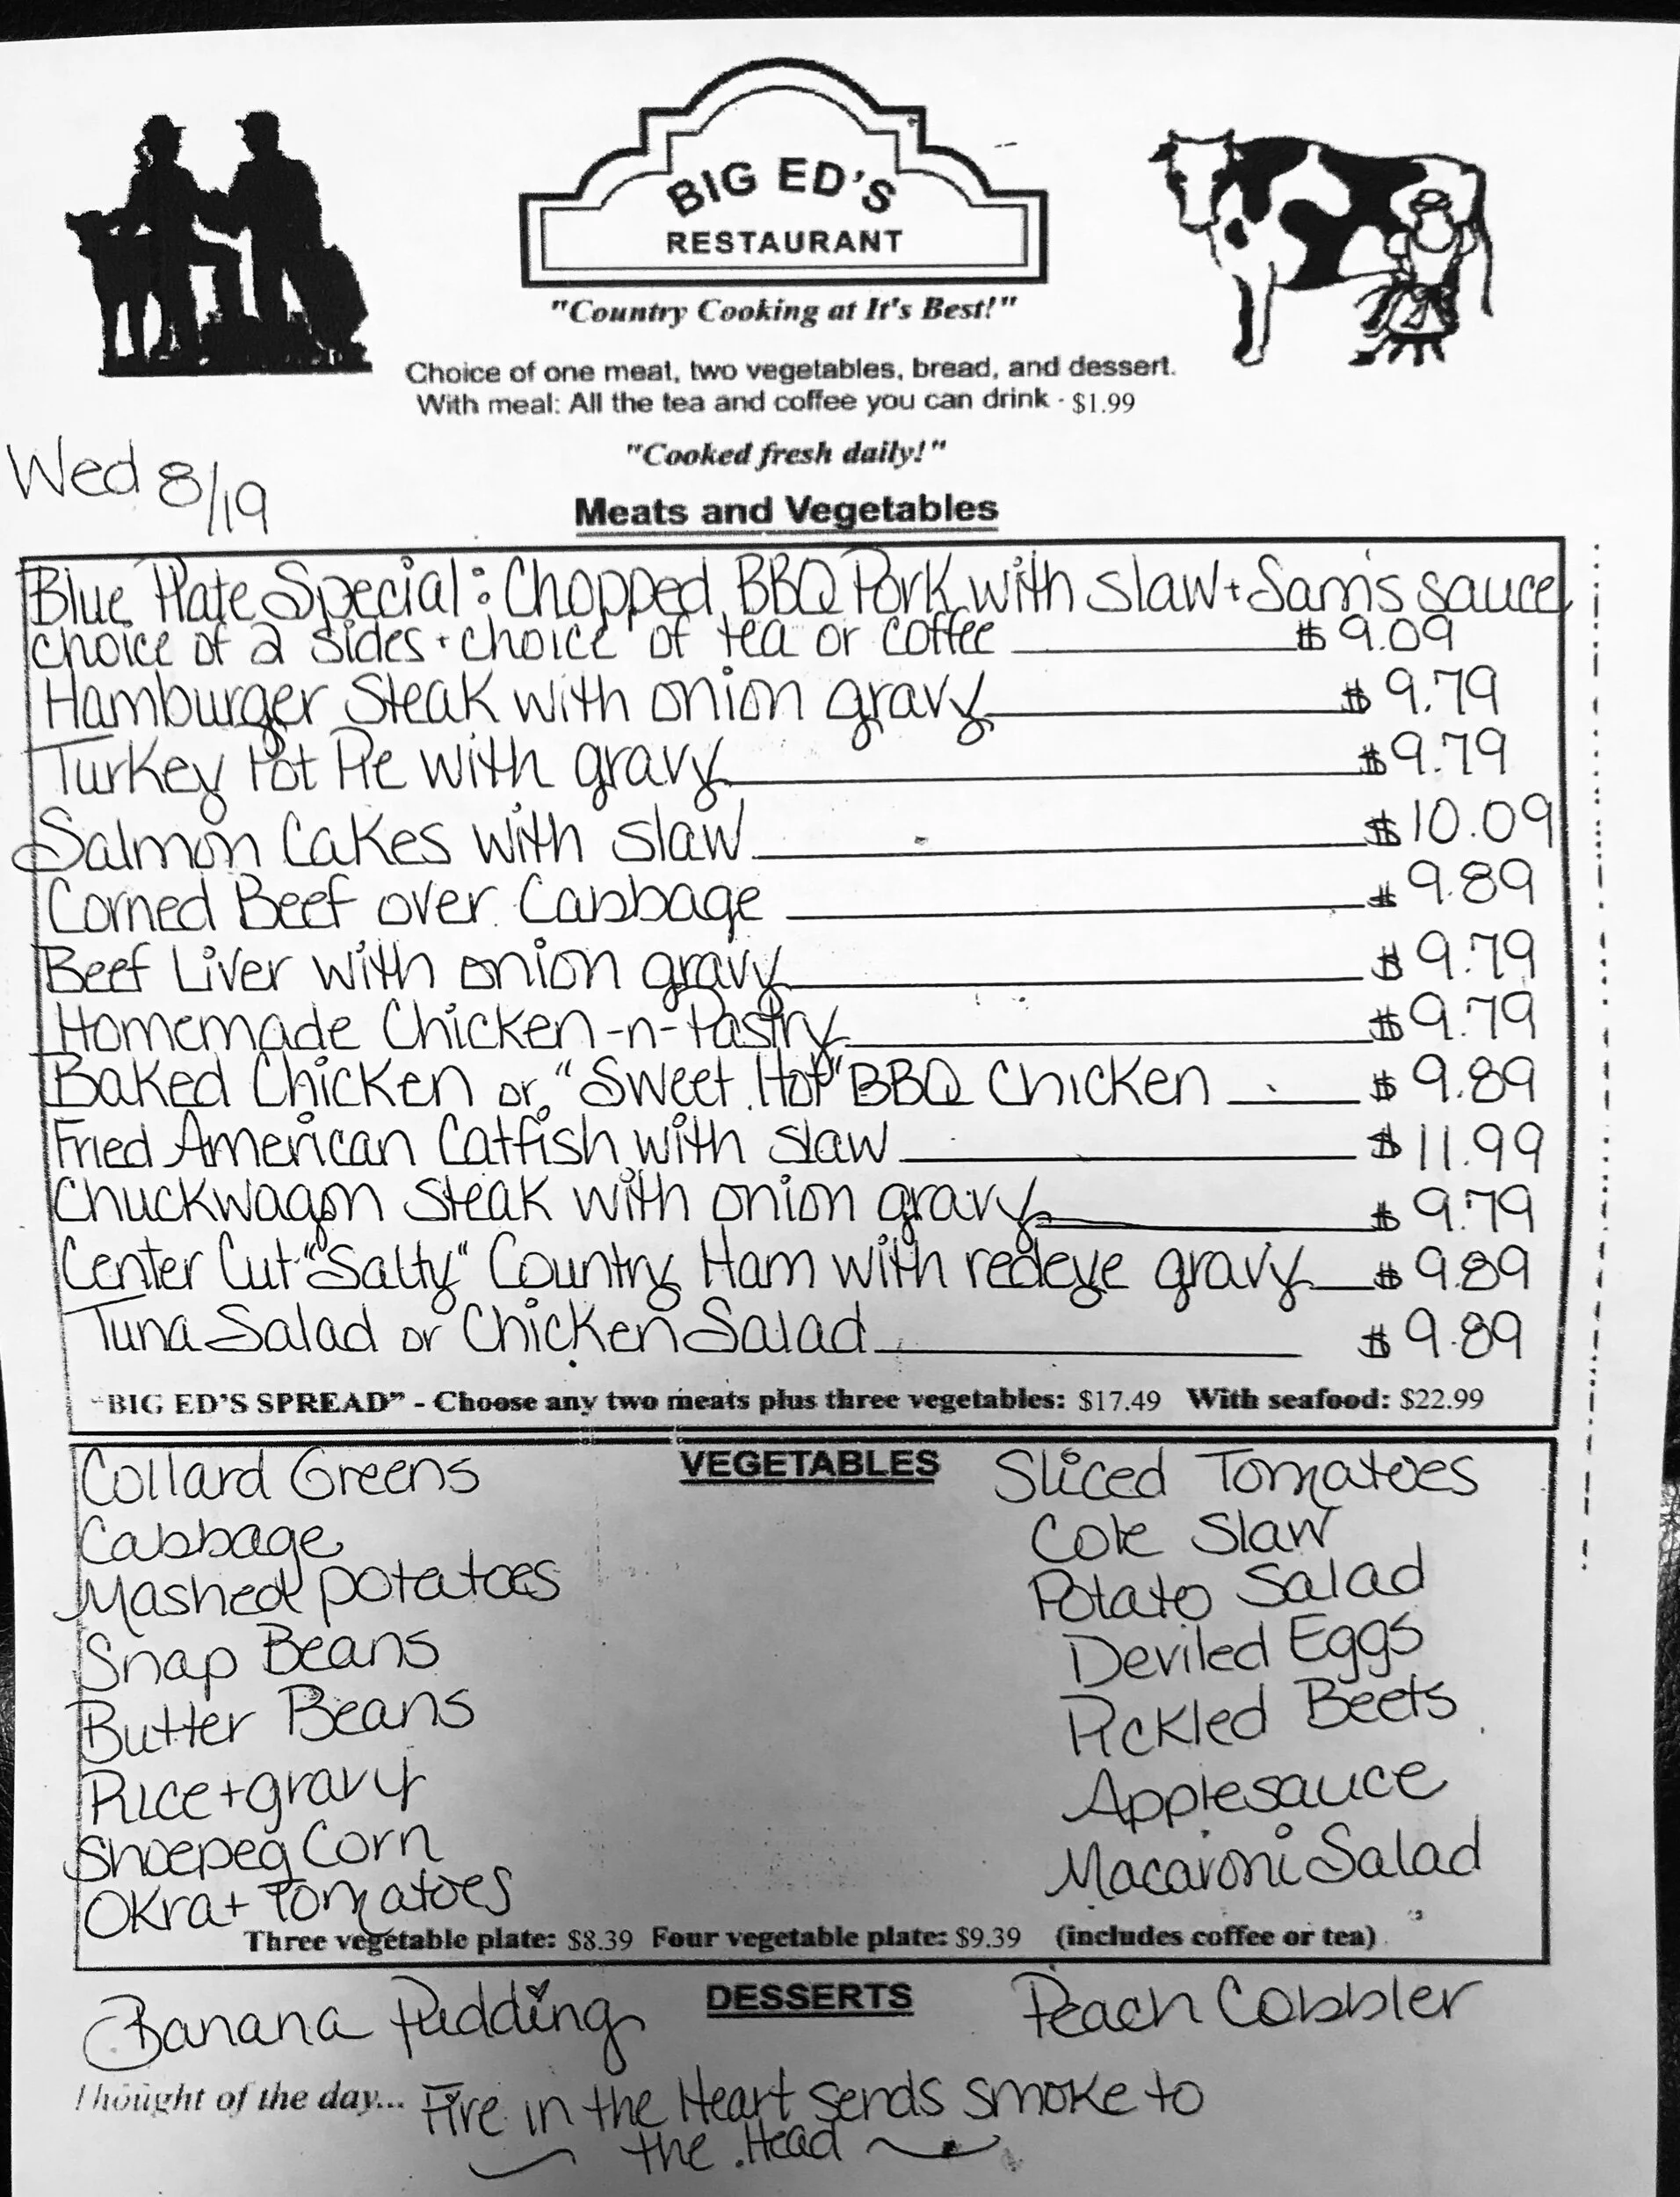 BIG ED'S
RESTAURANT
"Country Cooking at It's Best!"
Choice of one meat, two vegetables, bread, and dessert.
With meal: All the tea and coffee you can drink - $1.99
"Cooked fresh daily!"
Wed 8/19
Meats and Vegetables
Blue Plate Special: Chopped BBQ Pork with slaw + Sam's sauce
choice of 2 sides + choice of tea or coffee $9.09
Hamburger Steak with onion gravy $9.79
Turkey Pot Pie with gravy $9.79
Salmon Cakes with slaw $10.09
Corned Beef over Cabbage $9.89
Beef Liver with onion gravy $9.79
Homemade Chicken-n-Pastry $9.79
Baked Chicken or "Sweet Hot" BBQ Chicken $9.89
Fried American Catfish with slaw $11.99
Chuckwagon Steak with onion gravy $9.79
Center Cut "Salty" Country Ham with redeye gravy $9.89
Tuna Salad or Chicken Salad $9.89
"BIG ED'S SPREAD" - Choose any two meats plus three vegetables: $17.49 With seafood: $22.99
VEGETABLES
Collard Greens
Cabbage
Mashed potatoes
Snap Beans
Butter Beans
Rice + gravy
Shoepeg Corn
Okra + Tomatoes
Sliced Tomatoes
Cole Slaw
Potato Salad
Deviled Eggs
Pickled Beets
Applesauce
Macaroni Salad
Three vegetable plate: $8.39 Four vegetable plate: $9.39 (includes coffee or tea)
DESSERTS
Banana Pudding
Peach Cobbler
Thought of the day... Fire in the Heart sends smoke to
the Head